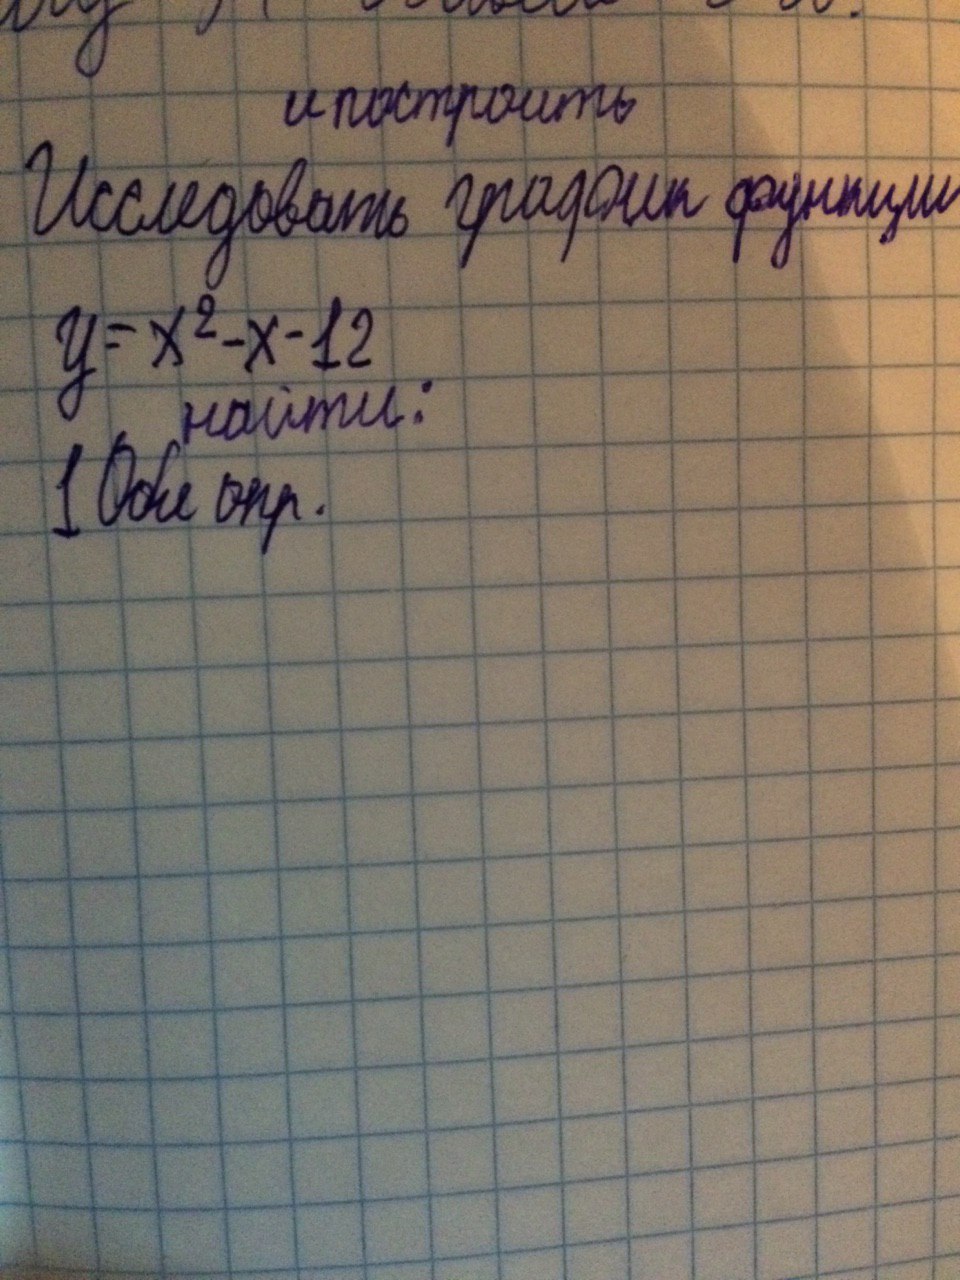 и построить
Исследовать график функции
y = x² - x - 12
найти:
1 Обл опр.